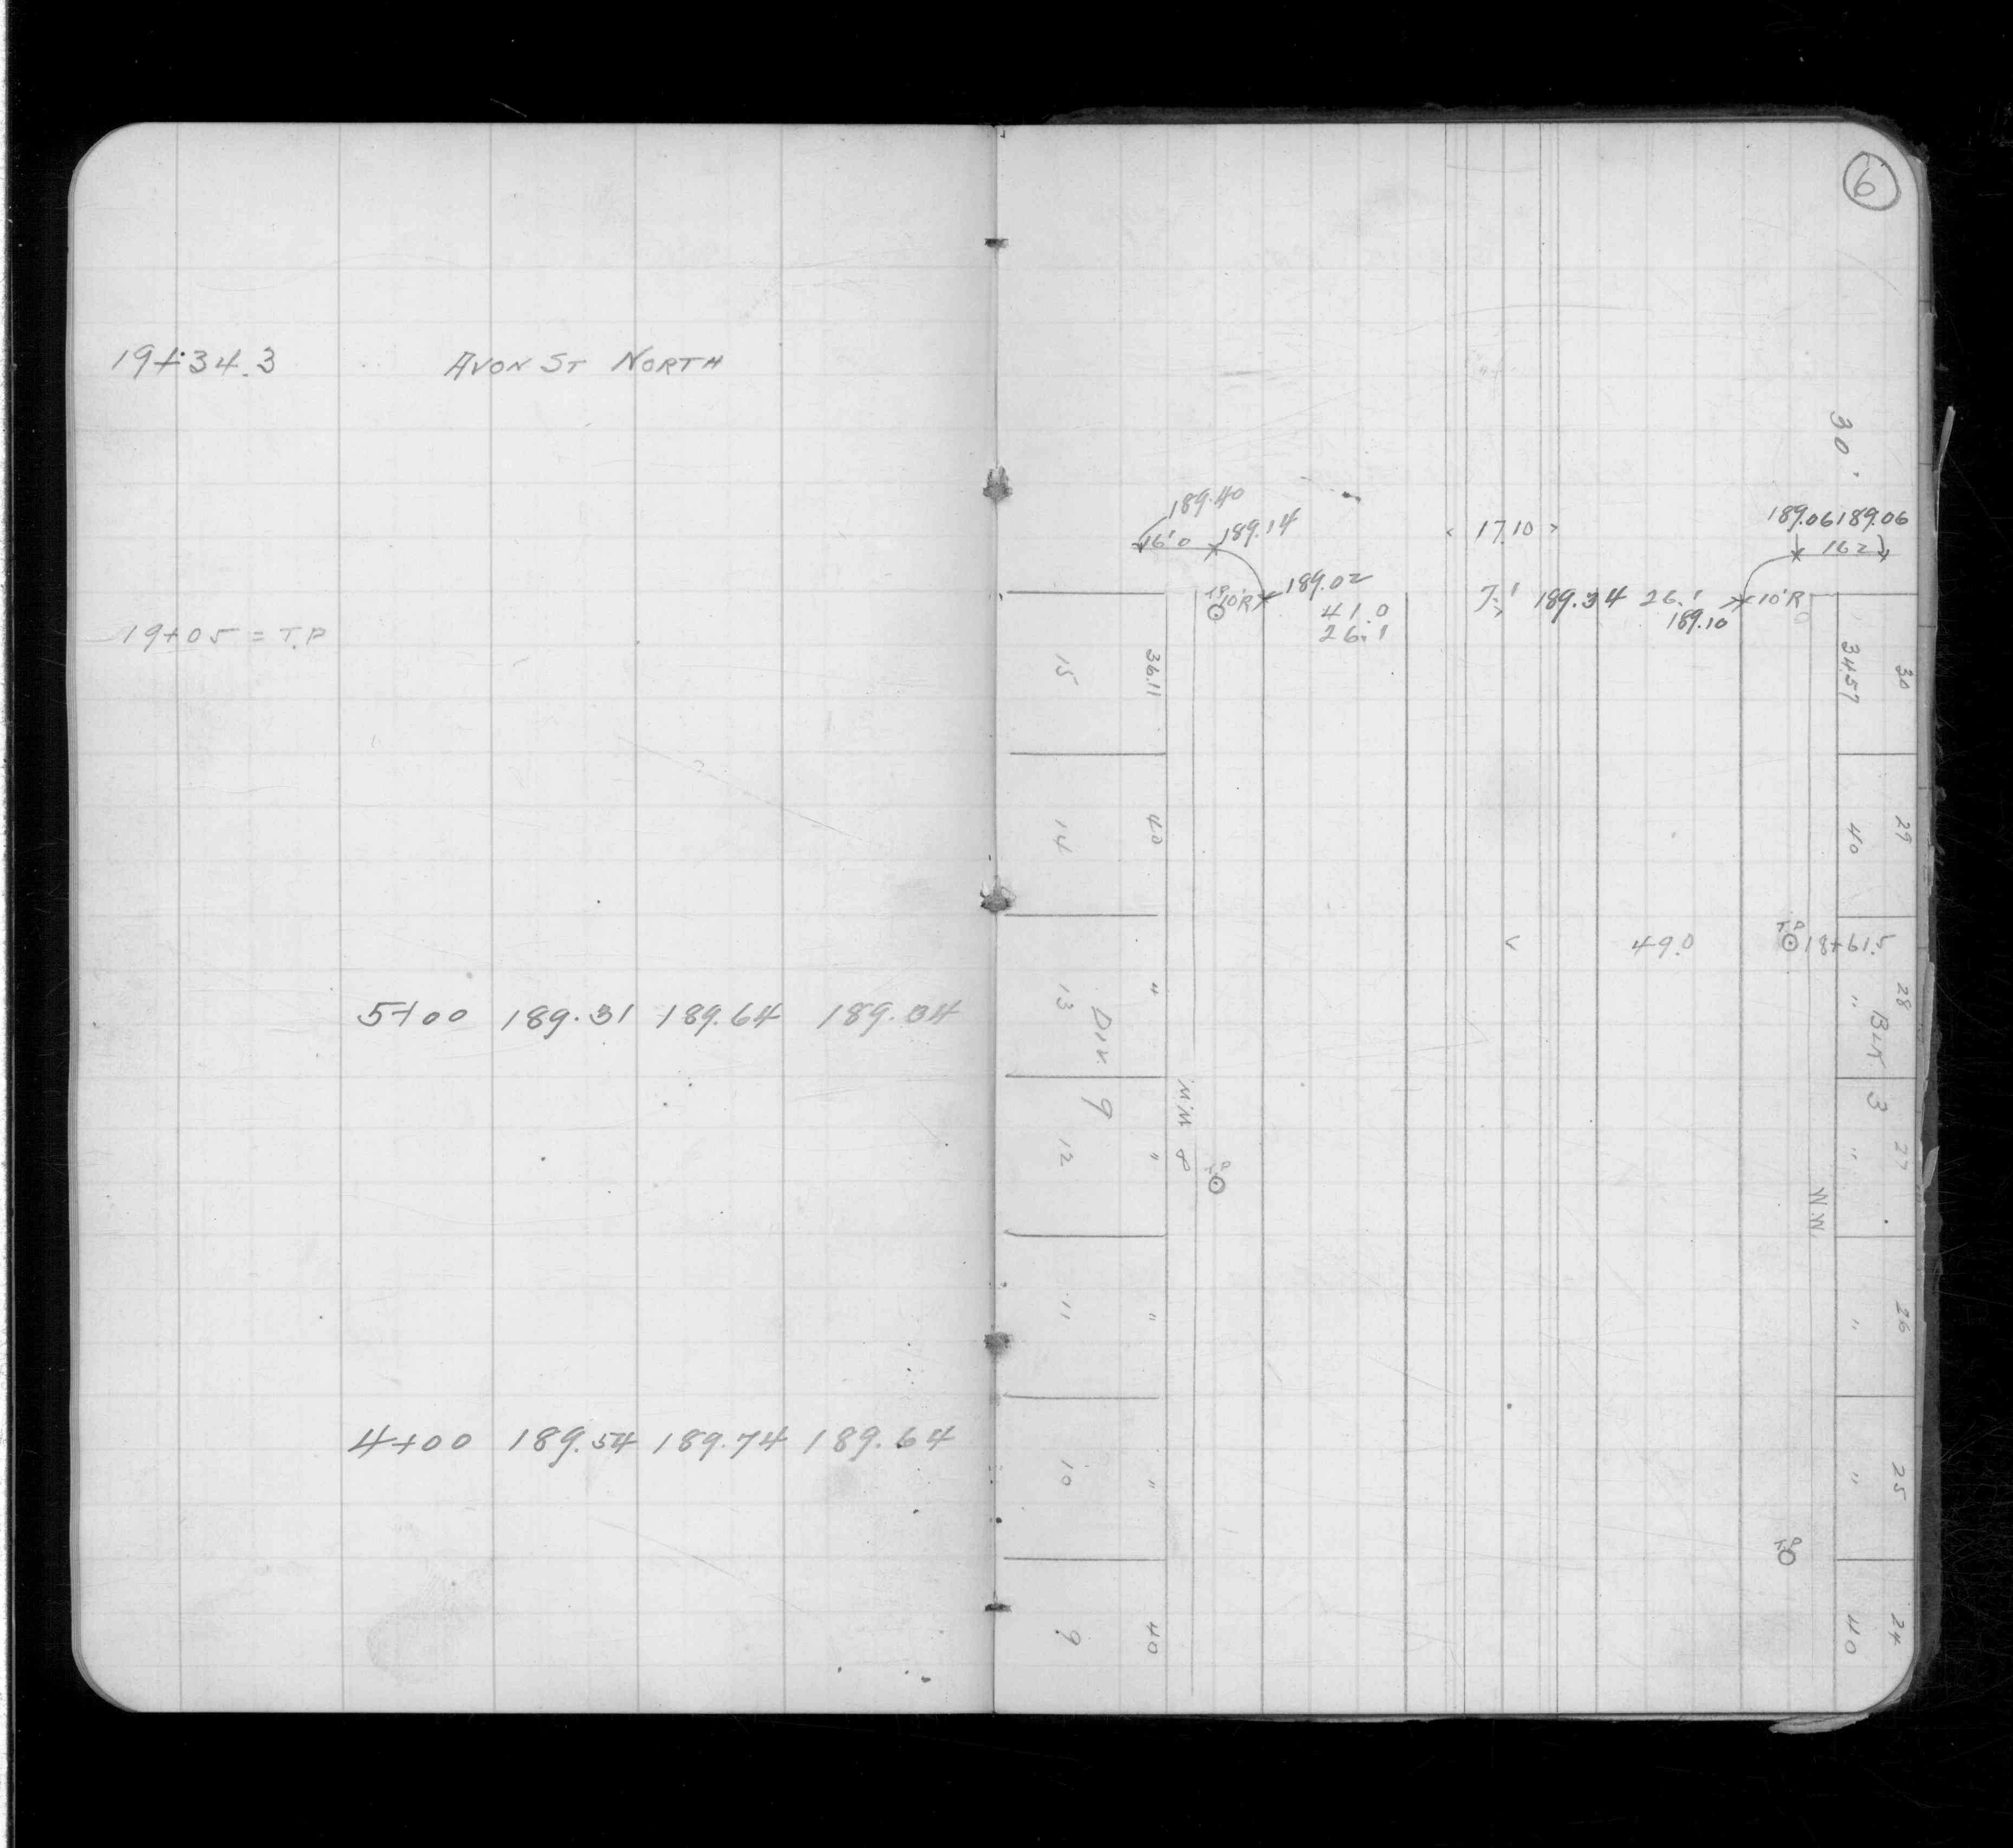 19+34.3 AVON ST NORTH
19+05 = T.P
5+00 189.31 189.64 189.34
4+00 189.54 189.74 189.64
6
30'
189.40
16'0 189.14
< 17.10 >
189.06 189.06
16 2
T.P 10'R 189.02
41.0
26.1
7.1 189.34 26.1 10'R
189.10
15 36.11
34.57 30
14 40
40 29
< 49.0 T.P 18+61.5
13 "
" 28
DIV. 9
BLK 3
12 "
" 27
W.W. 8
T.P
W.W.
11 "
" 26
10 "
" 25
T.P
9 40
40 24